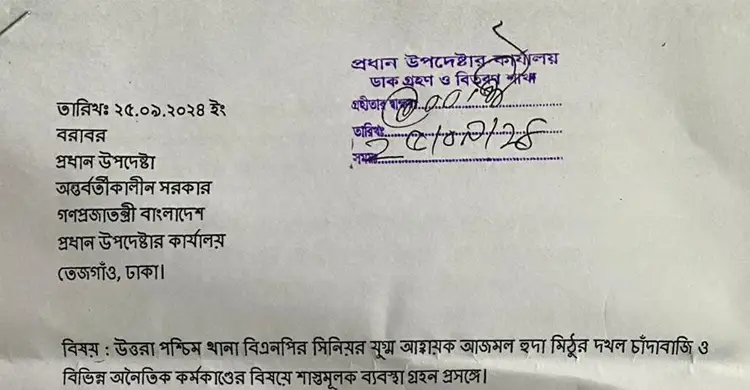 প্রধান উপদেষ্টার কার্যালয়
ডাক গ্রহণ ও বিতরণ শাখা
গ্রহীতার
তারিখঃ ২৫/০৯/২৪
সময়
তারিখঃ ২৫.০৯.২০২৪ ইং
বরাবর
প্রধান উপদেষ্টা
অন্তর্বর্তীকালীন সরকার
গণপ্রজাতন্ত্রী বাংলাদেশ
প্রধান উপদেষ্টার কার্যালয়
তেজগাঁও, ঢাকা।
বিষয় : উত্তরা পশ্চিম থানা বিএনপির সিনিয়র যুগ্ম আহ্বায়ক আজমল হুদা মিঠুর দখল চাঁদাবাজি ও
বিভিন্ন অনৈতিক কর্মকাণ্ডের বিষয়ে শাস্তুমূলক ব্যবস্থা গ্রহন প্রসঙ্গে।